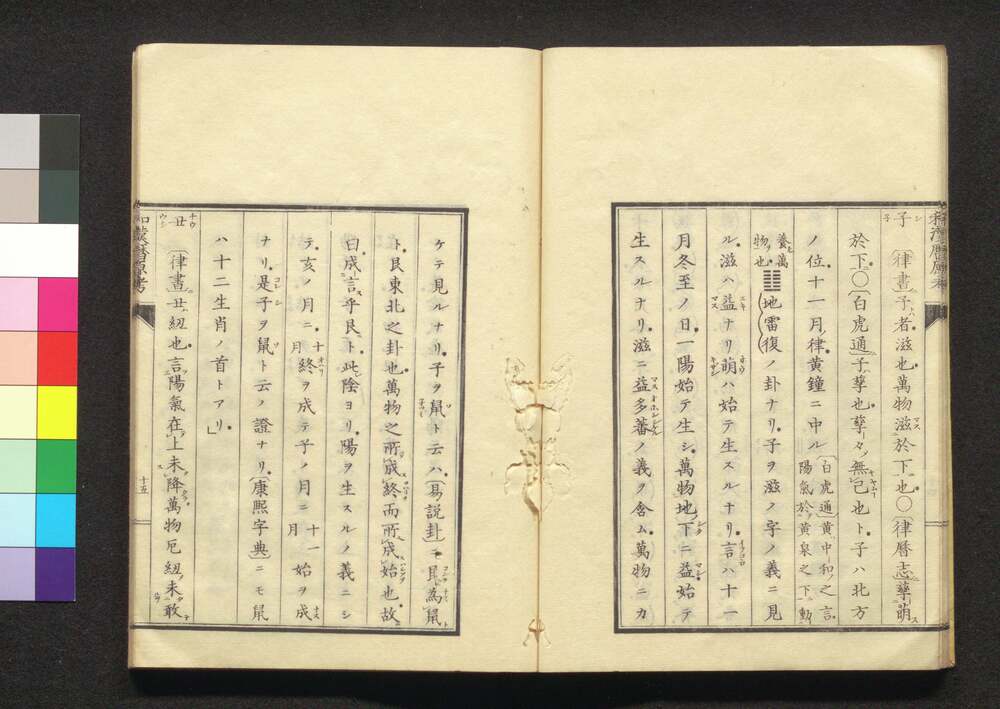 子 〔律書〕子者滋也萬物滋於下也〇律曆志孳萌
於下〇〔白虎通〕孑孳也孳々無已也ト子ハ北方
ノ位十一月律黄鐘ニ中ル〔白虎通黄中和ノ之言
陽氣於黄泉之下動
養萬
物ヲ也䷗〔地雷復〕ノ卦ナリ子ヲ滋ノ字ノ義ニ見
ル滋ハ益ナリ萌ハ始テ生スルナリ言ハ十一
月冬至ノ日一陽始テ生シ萬物地下ニ益始テ
生スルナリ滋ニ益多蕃ノ義ヲ含ム萬物ニカ
ケテ見ルナリ子ヲ鼠ト云ハ〔易説卦〕ニ艮為鼠
ト艮東北之卦也萬物之所成終而所成始也故
曰成言乎艮ト此陰ヨリ陽ヲ生スルノ義ニシ
テ亥ノ月ニ十月終ヲ成テ子ノ月ニ十一月始ヲ成
ナリ是子ヲ鼠ト云ノ證ナリ〔康熙字典〕ニモ鼠
ハ十二生肖ノ首トアリ」
丑 〔律書〕丑紐也言陽氣在上未降萬物厄紐未敢
和漢暦原考
十五